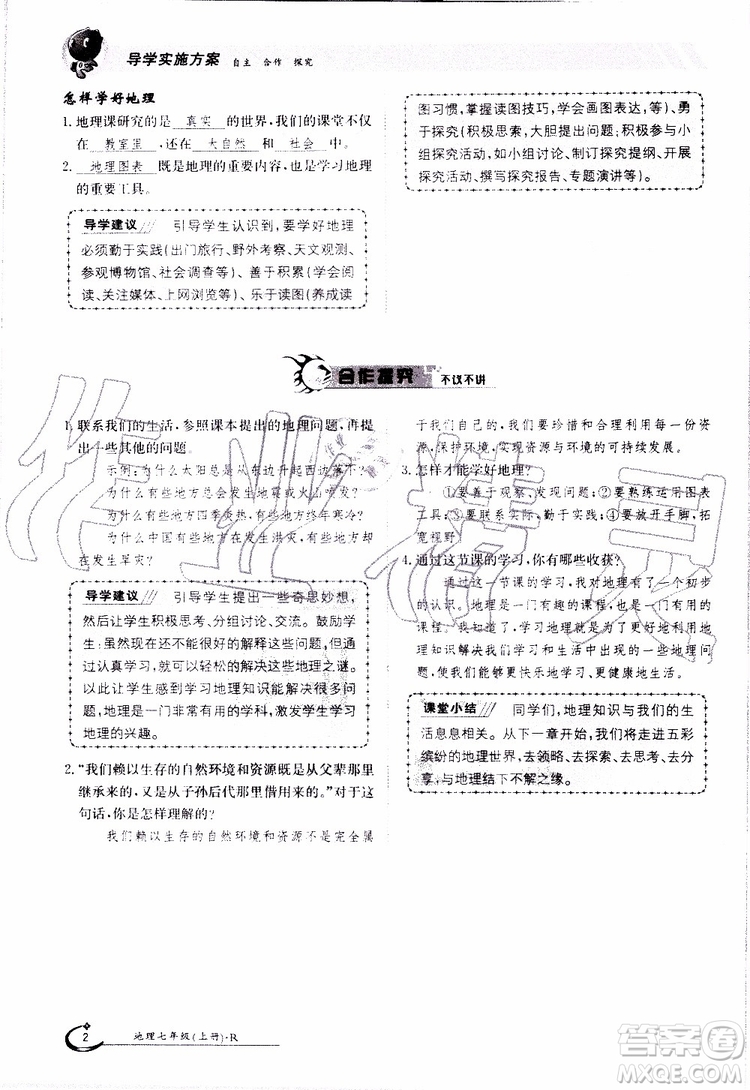 导学实施方案 自主 合作 探究
怎样学好地理
1. 地理课研究的是 真实 的世界,我们的课堂不仅
在 教室里 ,还在 大自然 和 社会 中。
2. 地理图表 既是地理的重要内容,也是学习地理
的重要工具。
导学建议 引导学生认识到,要学好地理
必须勤于实践(出门旅行、野外考察、天文观测、
参观博物馆、社会调查等)、善于积累(学会阅
读、关注媒体、上网浏览等)、乐于读图(养成读
图习惯,掌握读图技巧,学会画图表达,等)、勇
于探究(积极思索,大胆提出问题,积极参与小
组探究活动,如小组讨论、制订探究提纲、开展
探究活动、撰写探究报告、专题演讲等)。
合作探究 不议不讲
1. 联系我们的生活,参照课本提出的地理问题,再提
出一些其他的问题。
示例:为什么太阳总是从东边升起西边落下?
为什么有些地方会发生地震或火山喷发?
为什么有些地方四季炎热,有些地方终年寒冷?
为什么中国有些地方在发生洪灾,有些地方却
在发生旱灾?
导学建议 引导学生提出一些奇思妙想,
然后让学生积极思考、分组讨论、交流。鼓励学
生:虽然现在还不能很好的解释这些问题,但通
过认真学习,就可以轻松的解决这些地理之谜。
以此让学生感到学习地理知识能解决很多问
题,地理是一门非常有用的科学,激发学生学习
地理的兴趣。
2. “我们赖以生存的自然环境和资源既是从父辈那里
继承来的,又是从子孙后代那里借用来的。”对于这
句话,你是怎样理解的?
我们赖以生存的自然环境和资源不是完全属
于我们自己的,我们要珍惜和合理利用每一份资
源,保护环境,实现资源与环境的可持续发展。
3. 怎样才能学好地理?
①要善于观察、发现问题;②要熟练运用图表
工具;③要联系实际,学以致用;④要勤动脑,拓
宽视野。
4. 通过这节课的学习,你有哪些收获?
通过这一节课的学习,我对地理有了一个初步
的认识。地理是一门有趣的课程,也是一门有用的
课程。我认识到,学习地理可以更好地利用地
理知识解决学习和生活中的一些地理方面的问
题,使我们能够更快乐地学习、更健康地生活。
课堂小结 同学们,地理知识与我们的生
活息息相关。从下一章开始,我们将走进五彩
缤纷的地理世界,去领略、去探索、去思考、去分
享,与地理结下不解之缘。
2 地理七年级(上册)·R
作业精灵